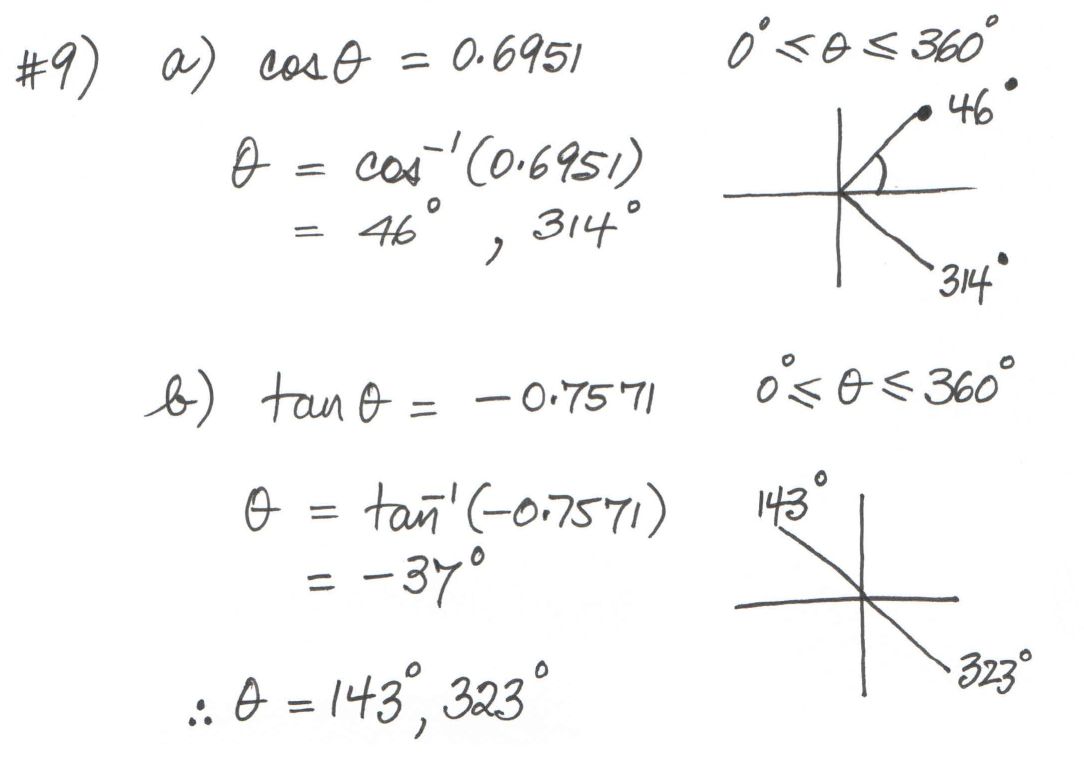 #9) a) cosθ = 0.6951 0° ≤ θ ≤ 360°
46°
θ = cos⁻¹(0.6951)
= 46°, 314°
314°
b) tan θ = -0.7571 0° ≤ θ ≤ 360°
143°
θ = tan⁻¹(-0.7571)
= -37°
323°
∴ θ = 143°, 323°